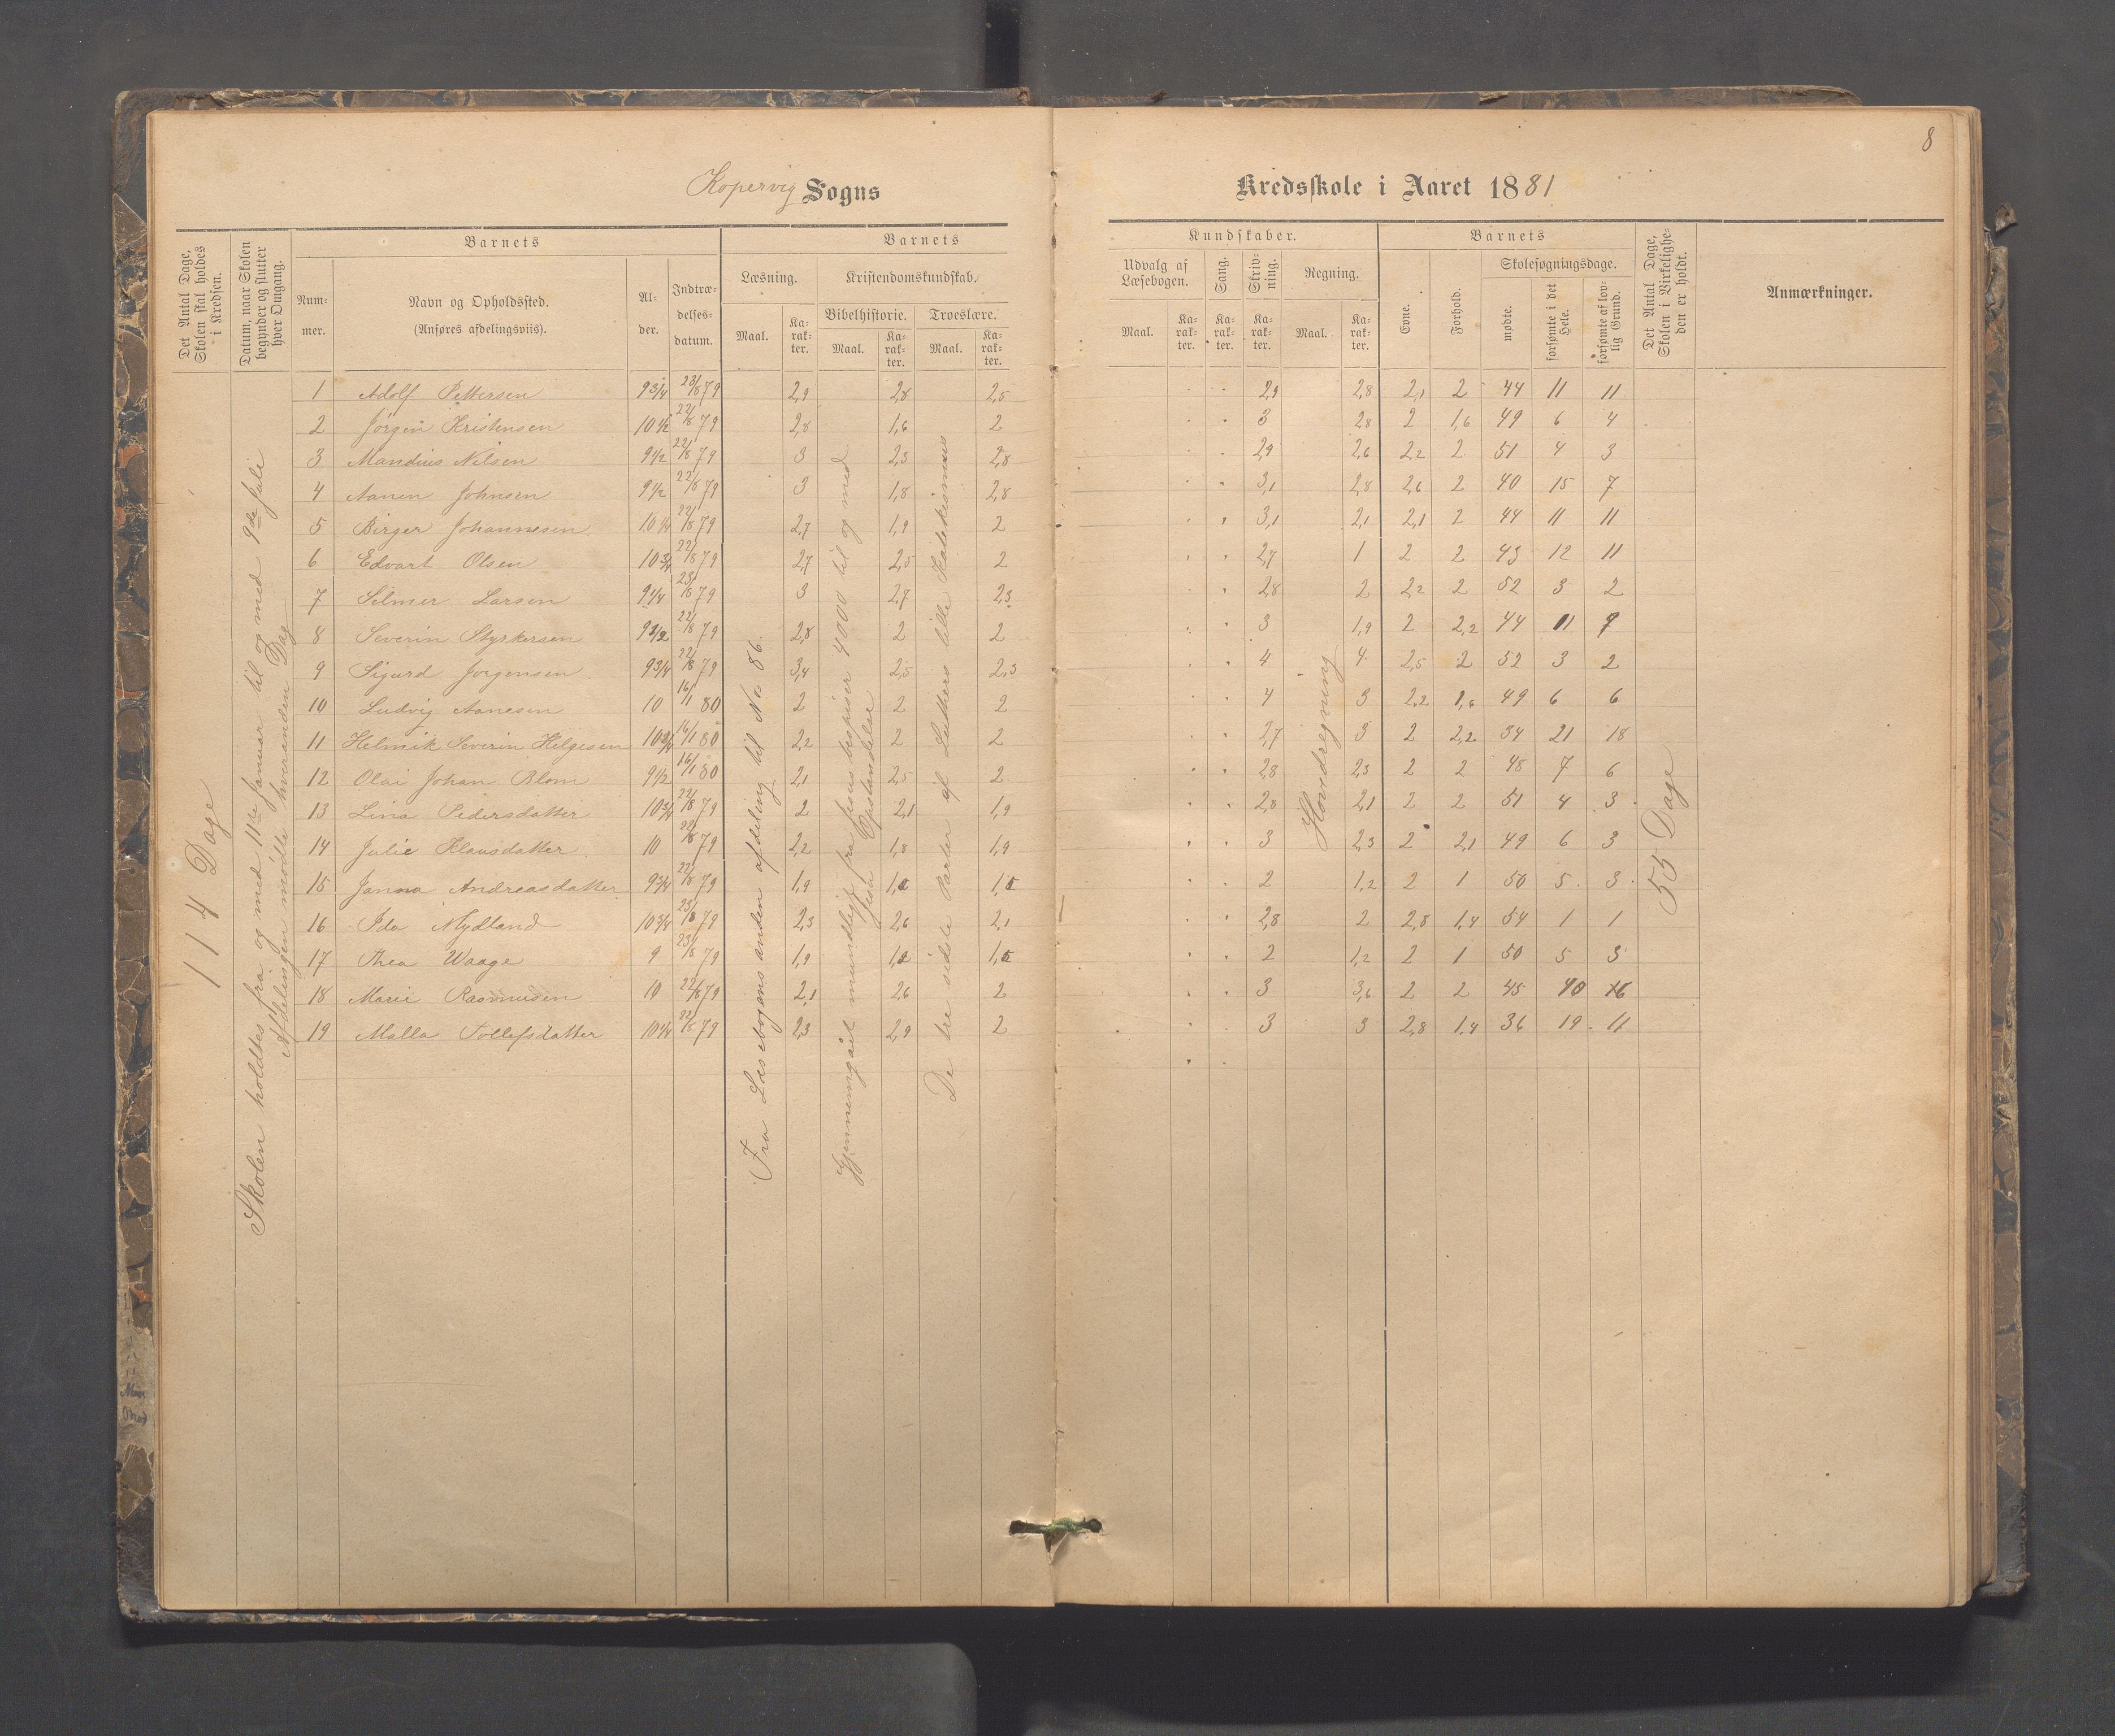 8
Kopervig Sogns
Kredsskole i Aaret 1881
Det Antal Dage, Skolen skal holdes i Kredsen.
Datum, naar Skolen begynder og slutter hver Omgang.
Barnets
Num-mer.
Navn og Opholdssted.
(Anføres afdelingsviis).
Al-der.
Indtræ-delses-datum.
Barnets
Læsning.
Maal.
Ka-rak-ter.
Kristendomskundskab.
Bibelhistorie.
Maal.
Ka-rak-ter.
Troeslære.
Maal.
Ka-rak-ter.
Kundskaber.
Udvalg af Læsebogen.
Maal.
Ka-rak-ter.
Sang.
Ka-rak-ter.
Skriv-ning.
Ka-rak-ter.
Regning.
Maal.
Ka-rak-ter.
Barnets
Evne.
Forhold.
Skolesøgningsdage.
mødte.
forsømte i det Hele.
forsømte af lov-lig Grund.
Det Antal Dage, Skolen i Virkelighe-den er holdt.
Anmærkninger.
114 Dage
Skolen holdtes fra og med 11te Januar til og med 9de Juli
Afdelingen mødte hveranden Dag
Fra Læsebogens anden afdeling til No 86.
Gjennemgaaet mundligt fra Jesus bespiser 4000 til og med
Jesu Opstandelse
De tre sidste Parter af Luthers lille Katekismus
Hovedregning
55 Dage
1 Adolf Pettersen 9 3/4 23/8 79 2,9 2,8 2,5 2,9 2,8 2,1 2 44 11 11
2 Jörgen Kristensen 10 1/2 22/8 79 2,8 1,6 2 3 2,8 2 1,6 49 6 4
3 Mandius Nilsen 9 1/2 22/8 79 3 2,3 2,8 2,9 2,6 2,2 2 51 4 3
4 Aanen Johnsen 9 1/2 22/8 79 3 1,8 2,8 3,1 2,8 2,6 2 40 15 7
5 Birger Johannesen 10 1/4 22/8 79 2,7 1,9 2 3,1 2,1 2,1 2 44 11 11
6 Edvart Olsen 10 3/4 22/8 79 2,7 2,5 2 2,7 1 2 2 43 12 11
7 Selmer Larsen 9 1/4 23/8 79 3 2,7 2,3 2,8 2 2,2 2 52 3 2
8 Severin Styrkersen 9 1/2 22/8 79 2,8 2 2 3 1,9 2 2,2 44 11 9
9 Sigurd Jorgensen 9 3/4 22/8 79 3,4 2,5 2,3 4 4 2,5 2 52 3 2
10 Ludvig Aanesen 10 16/1 80 2 2 2 4 3 2,2 1,6 49 6 6
11 Helmik Severin Helgesen 10 3/4 16/1 80 2,2 2 2 2,7 3 2 2,2 34 21 18
12 Olai Johan Blom 9 1/2 16/1 80 2,1 2,5 2 2,8 2,3 2 2 48 7 6
13 Lina Pedersdatter 10 3/4 22/8 79 2 2,1 1,9 2,8 2,1 2 2 51 4 3
14 Julie Klausdatter 10 22/8 79 2,2 1,8 1,9 3 2,3 2 2,1 49 6 3
15 Janna Andreasdatter 9 3/4 22/8 79 1,9 1,2 1,5 2 1,2 2 1 50 5 3
16 Ida Mydland 10 3/4 23/8 79 2,3 2,6 2,1 2,8 2 2,8 1,4 54 1 1
17 Thea Waage 9 23/8 79 1,9 1,2 1,5 2 1,2 2 1 50 5 3
18 Marie Rasmusen 10 22/8 79 2,1 2,6 2 3 3,6 2 2 45 10 6
19 Malla Tollefsdatter 10 1/4 22/8 79 2,3 2,9 2 3 3 2,8 1,4 36 19 11